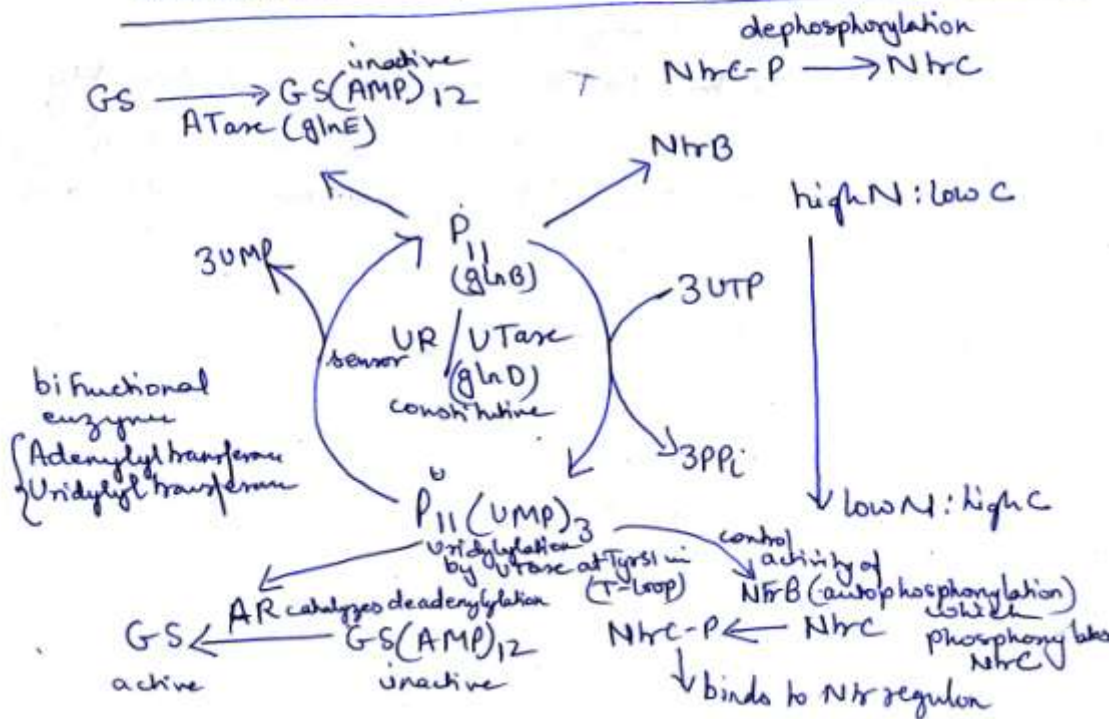 dephosphorylation
NtrC-P → NtrC
inactive
GS → GS(AMP)12
ATase (glnE)
NtrB
high N : low C
PII
(glnB)
3UMP
3UTP
sensor UR / UTase
(glnD)
constitutive
bifunctional
enzyme
{ Adenylyltransferase
Uridylyltransferase
3PPi
low N : high C
PII (UMP)3
uridylylation
by UTase at Tyr51 in
(T-loop)
control
activity of
NtrB (autophosphorylation)
which
phosphorylates
NtrC
AR catalyzes deadenylylation
GS ← GS(AMP)12
active inactive
NtrC-P ← NtrC
↓ binds to Ntr regulon